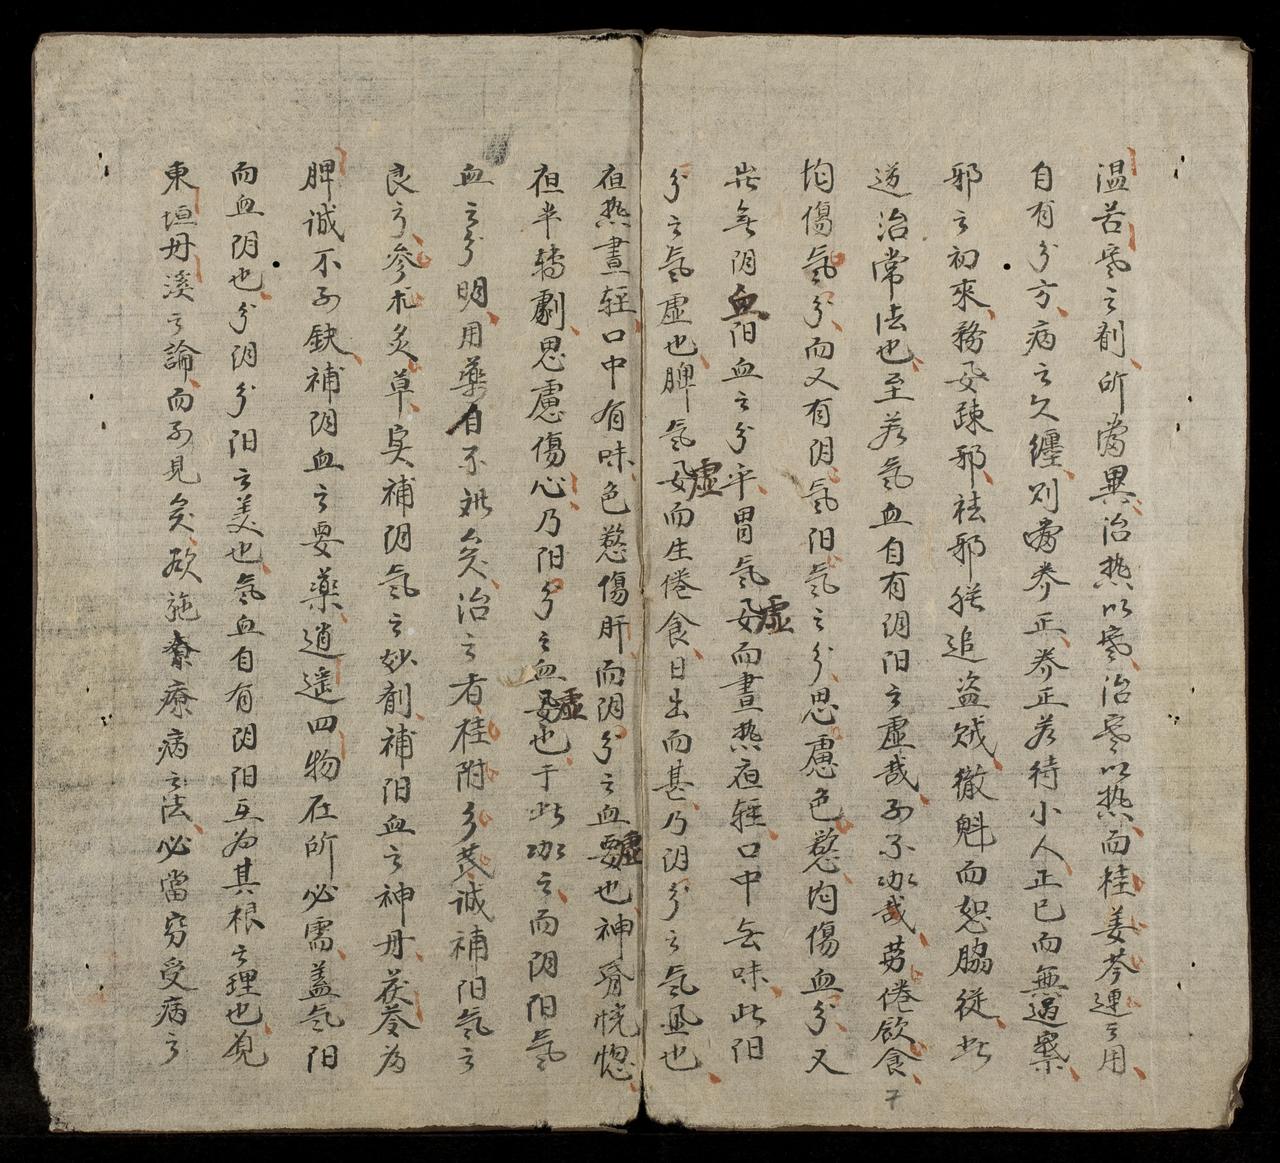 温苦寒之剤所當異治熱以寒治寒以熱而桂姜芩連之用
自有分方病之久纏則當养正养正若待小人正已而無過察
邪之初來務要踈邪袪邪猶追盗贼撤魁而恕脇從此
逆治常法也至若氣血自有阴阳之虚哉可不加哉劳倦飲食
均傷氣分而又有阴氣阳氣之分思慮色慾均傷血分又
豈無阴血阳血之分乎胃氣虚而晝热夜轻口中無味此阳
分之氣虚也脾氣虚而生倦食日出而甚乃阴分之氣虚也
夜热晝轻口中有味色慾傷肝而阴分之血虚也神昏恍惚
夜半轉劇思慮傷心乃阳分之血虚也于此加之而阴阳氣
血之分明用藥自不难矣治之者桂附参芪诚補阳氣之
良方参术炙草寔補阴氣之妙剤補阳血之神丹茯苓为
脾诚不可缺補阴血之要藥逍遥四物在所必需盖气阳
而血阴也分阴分阳之美也氣血自有阴阳互为其根之理也觀
東垣丹溪之論而可見矣欲施療病之法必當穷受病之
7